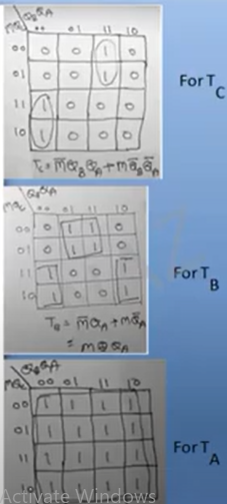 Q_B Q_A
MQ_C 00 01 11 10
00 0 0 1 0
01 0 0 1 0
11 1 0 0 0
10 1 0 0 0
T_C = M̅Q_B Q_A + M Q̅_B Q̅_A
For T_C
Q_B Q_A
MQ_C 00 01 11 10
00 0 1 1 0
01 0 1 1 0
11 1 0 0 1
10 1 0 0 1
T_B = M̅Q_A + MQ̅_A
= M ⊕ Q_A
For T_B
Q_B Q_A
MQ_C 00 01 11 10
00 1 1 1 1
01 1 1 1 1
11 1 1 1 1
10 1 1 1 1
For T_A
Activate Windows